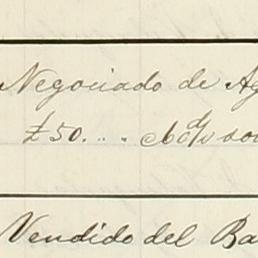 Negociado de Ag
£50....
Vendido del Ba